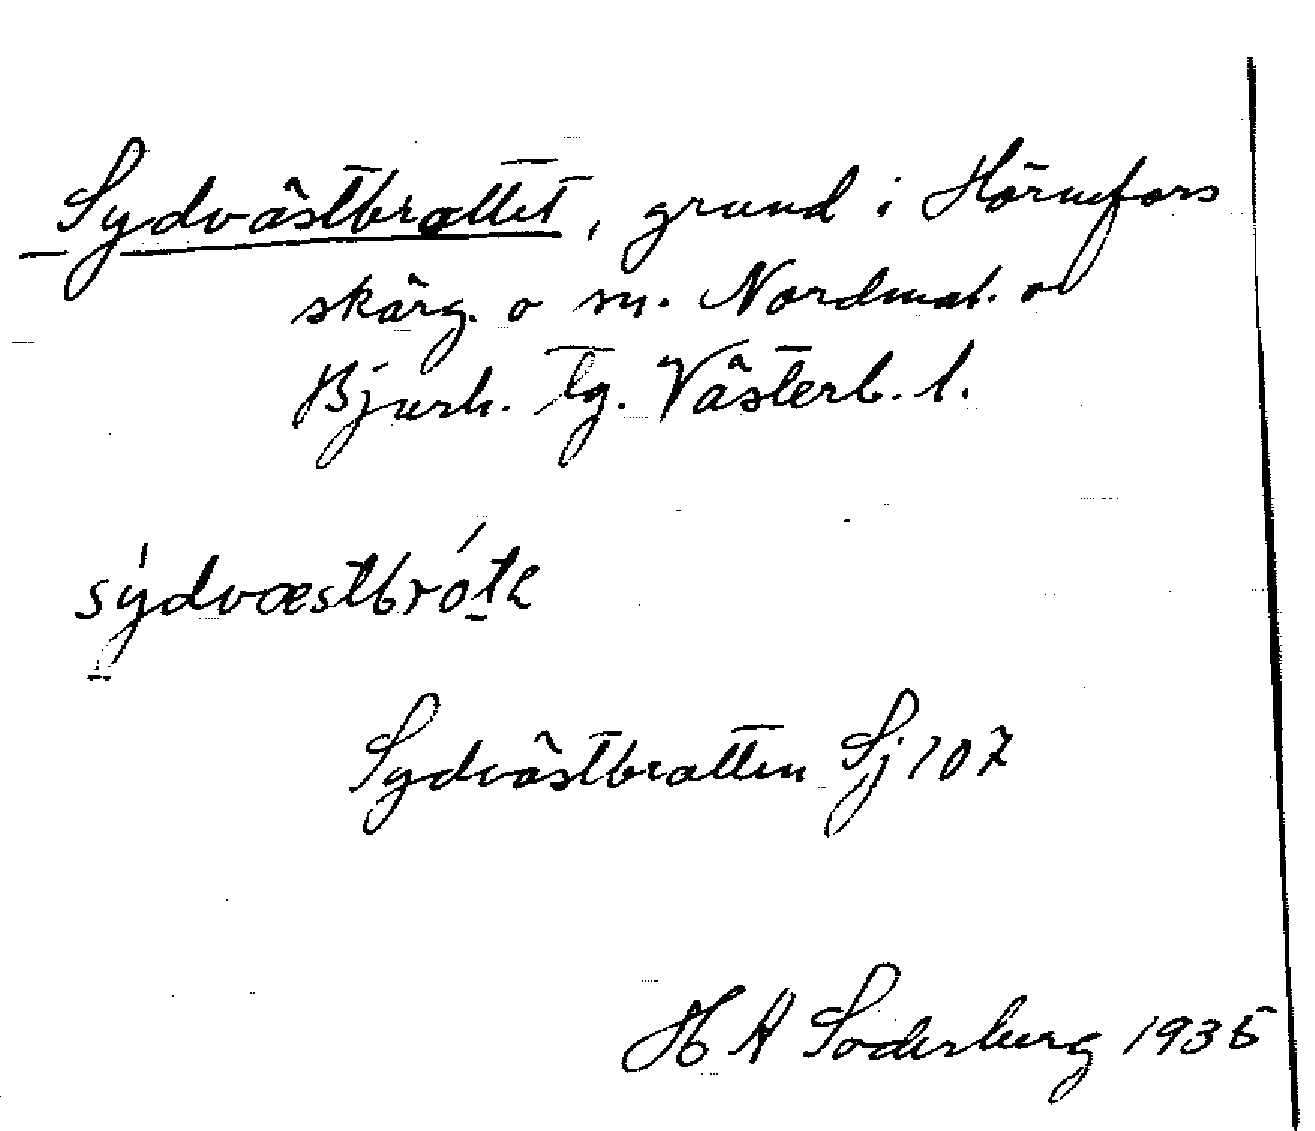 Sydvästbrottet, grund i Hörnefors
skärg. o sn. Nordmal. o
Bjurh. tg. Västerb. l.
sýdvæstbrótε
Sydvästbrotten Sj 107
H A Söderberg 1935